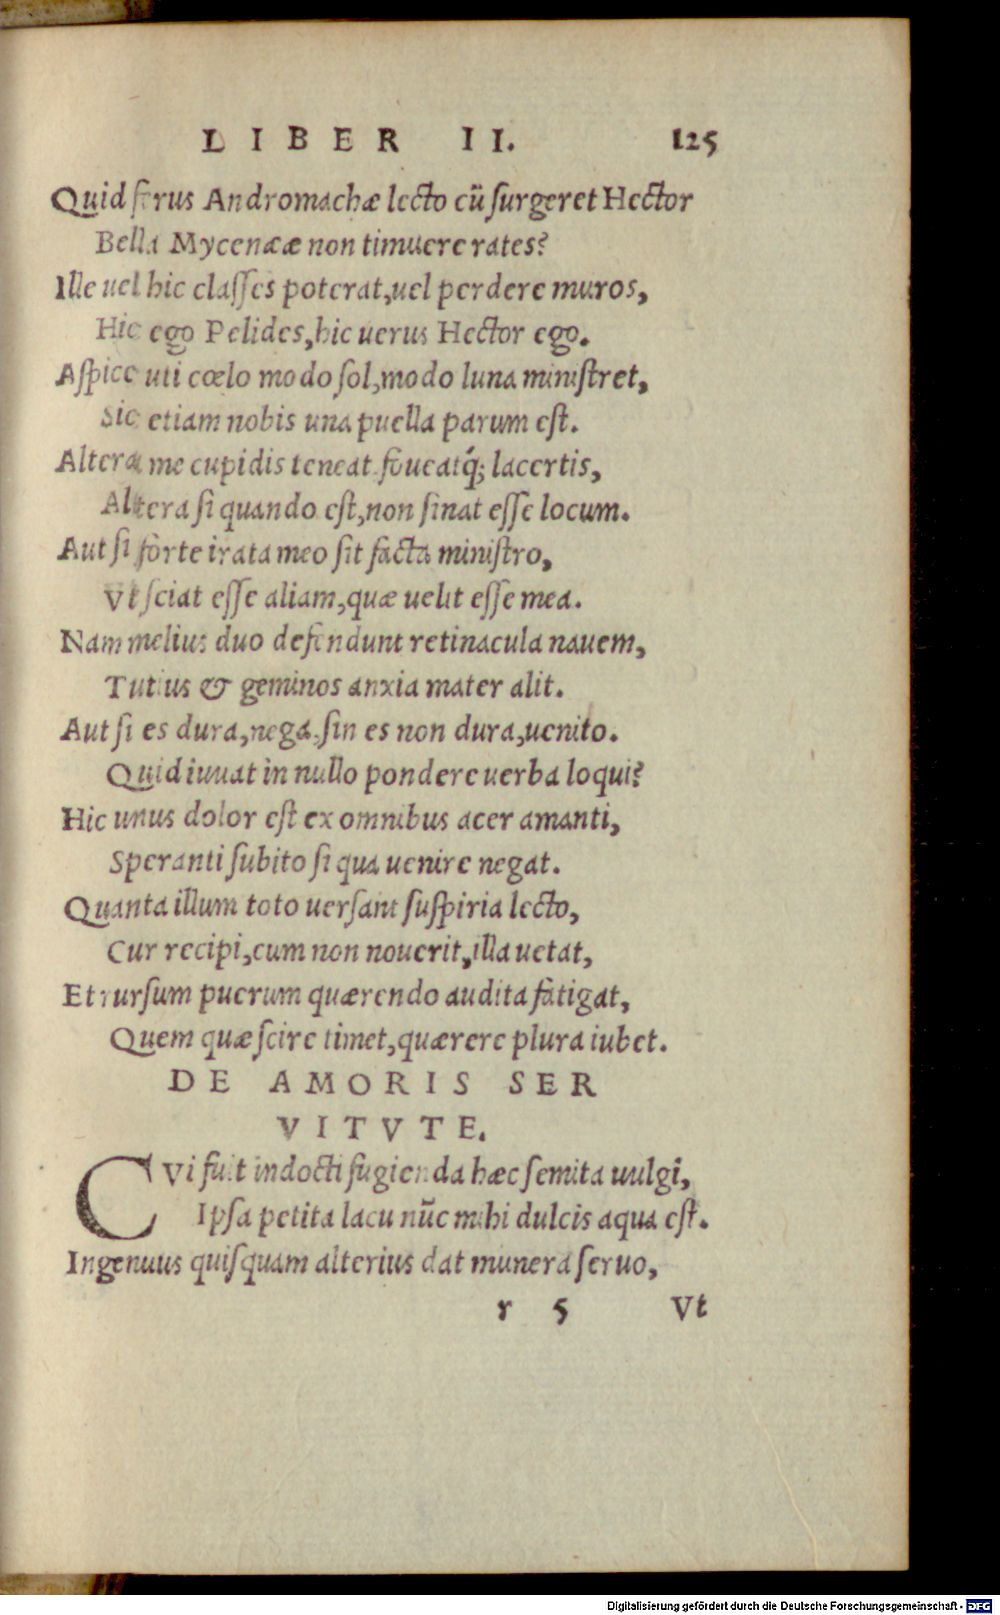 LIBER II. 125
Quid ferus Andromachæ lecto cū surgeret Hector
Bella Mycenææ non timuere rates?
Ille uel hic classes poterat, uel perdere muros,
Hic ego Pelides, hic uerus Hector ego.
Aspice uti cœlo modo sol, modo luna ministret,
Sic etiam nobis una puella parum est.
Altera me cupidis teneat foueatq́; lacertis,
Altera si quando est, non sinat esse locum.
Aut si forte irata meo sit facta ministro,
Vt sciat esse aliam, quæ uelit esse mea.
Nam melius duo defendunt retinacula nauem,
Tutius & geminos anxia mater alit.
Aut si es dura, nega, sin es non dura, uenito.
Quid iuuat in nullo pondere uerba loqui?
Hic unus dolor est ex omnibus acer amanti,
Speranti subito si qua uenire negat.
Quanta illum toto uersant suspiria lecto,
Cur recipi, cum non nouerit, illa uetat,
Et rursum puerum quærendo audita fatigat,
Quem quæ scire timet, quærere plura iubet.
DE AMORIS SER
VITVTE.
CVi fuit indocti fugienda hæc semita uulgi,
Ipsa petita lacu nūc mihi dulcis aqua est.
Ingenuus quisquam alterius dat munera seruo,
r 5 Vt
Digitalisierung gefördert durch die Deutsche Forschungsgemeinschaft - DFG